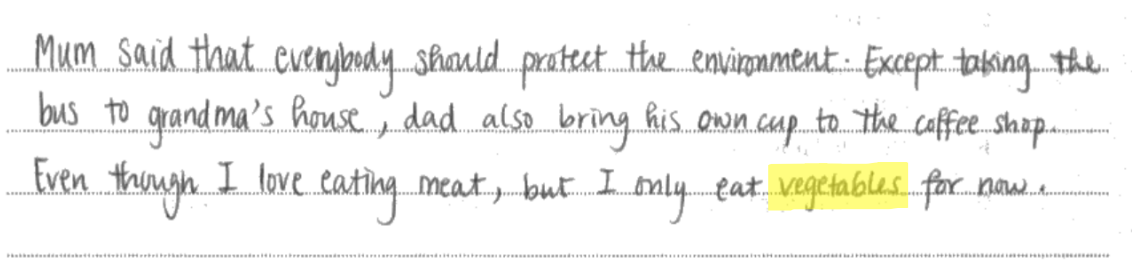 Mum said that everybody should protect the environment. Except taking the
bus to grandma's house, dad also bring his own cup to the coffee shop.
Even though I love eating meat, but I only eat vegetables for now.